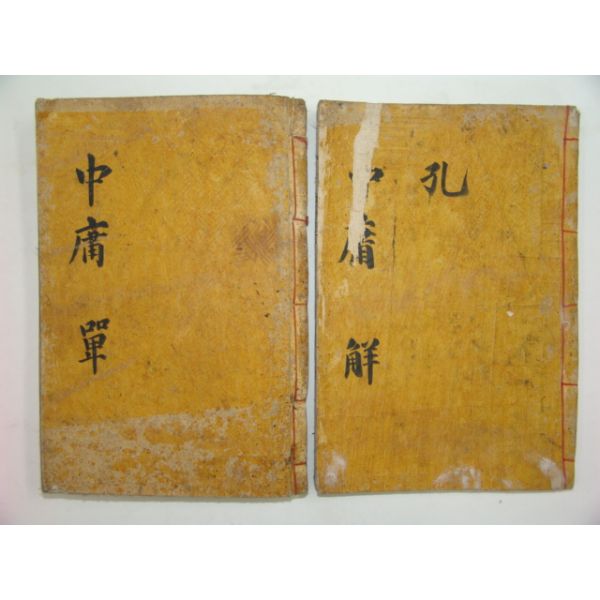 中庸單
孔
中庸解